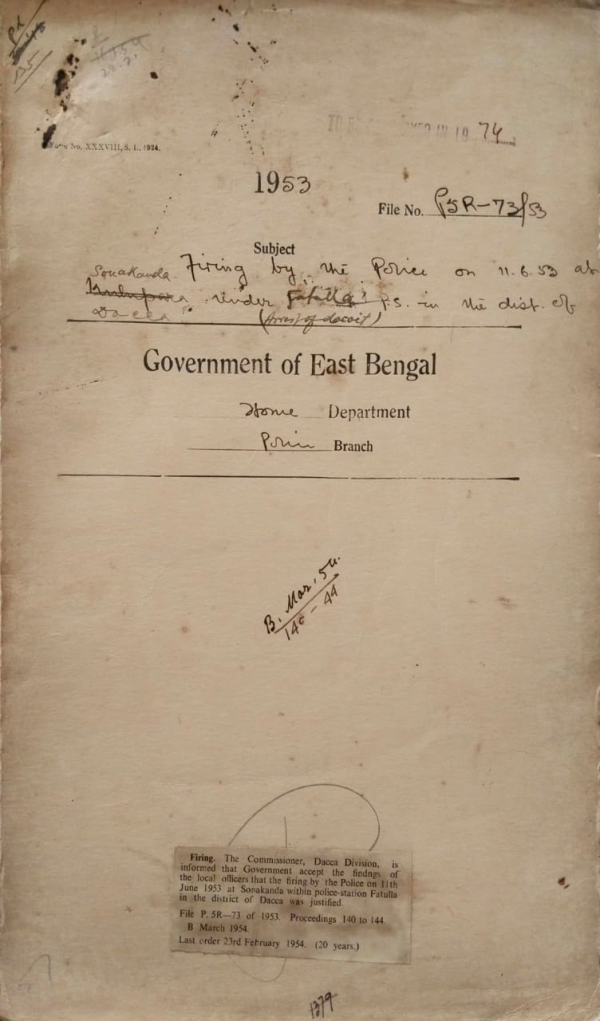 Form No. XXXVIII, S. L., 1924.
74
1953
File No. P5R-73/53
Subject
Sonakanda Firing by the Police on 11.6.53 at
under Fatulla P.S. in the dist. of
Dacca
(Arrest of dacoit)
Government of East Bengal
Home Department
Police Branch
B. Mar. 54.
140-44
Firing. The Commissioner, Dacca Division, is
informed that Government accept the findngs of
the local officers that the firing by the Police on 11th
June 1953 at Sonakanda within police-station Fatulla
in the district of Dacca was justified.
File P. 5R—73 of 1953. Proceedings 140 to 144.
B March 1954.
Last order 23rd February 1954. (20 years.)
1379